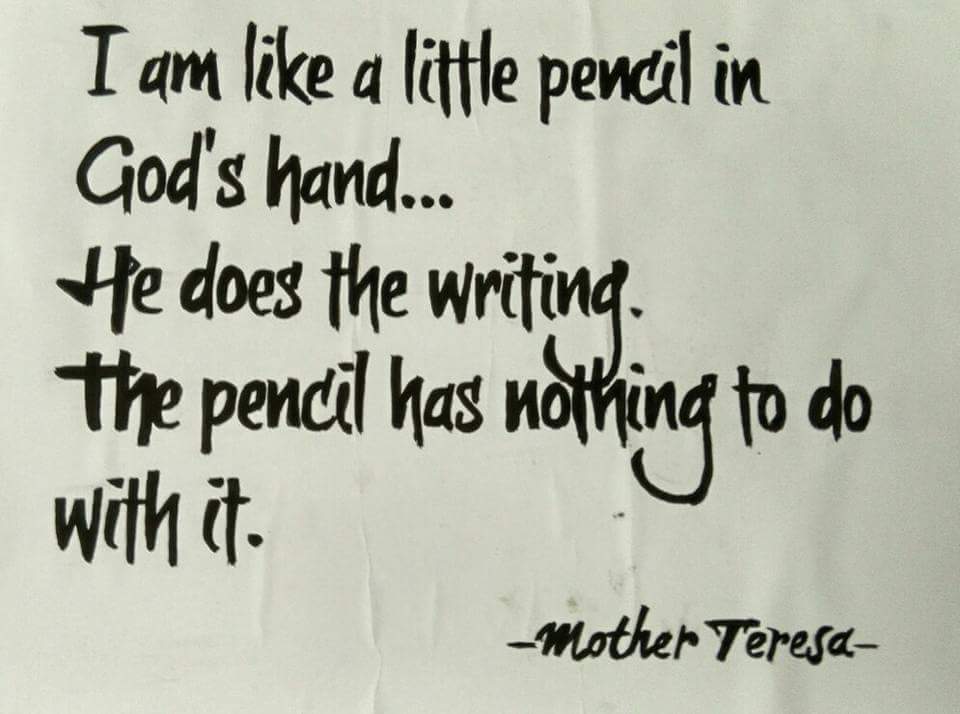 I am like a little pencil in
God's hand...
He does the writing.
The pencil has nothing to do
with it.
-Mother Teresa-